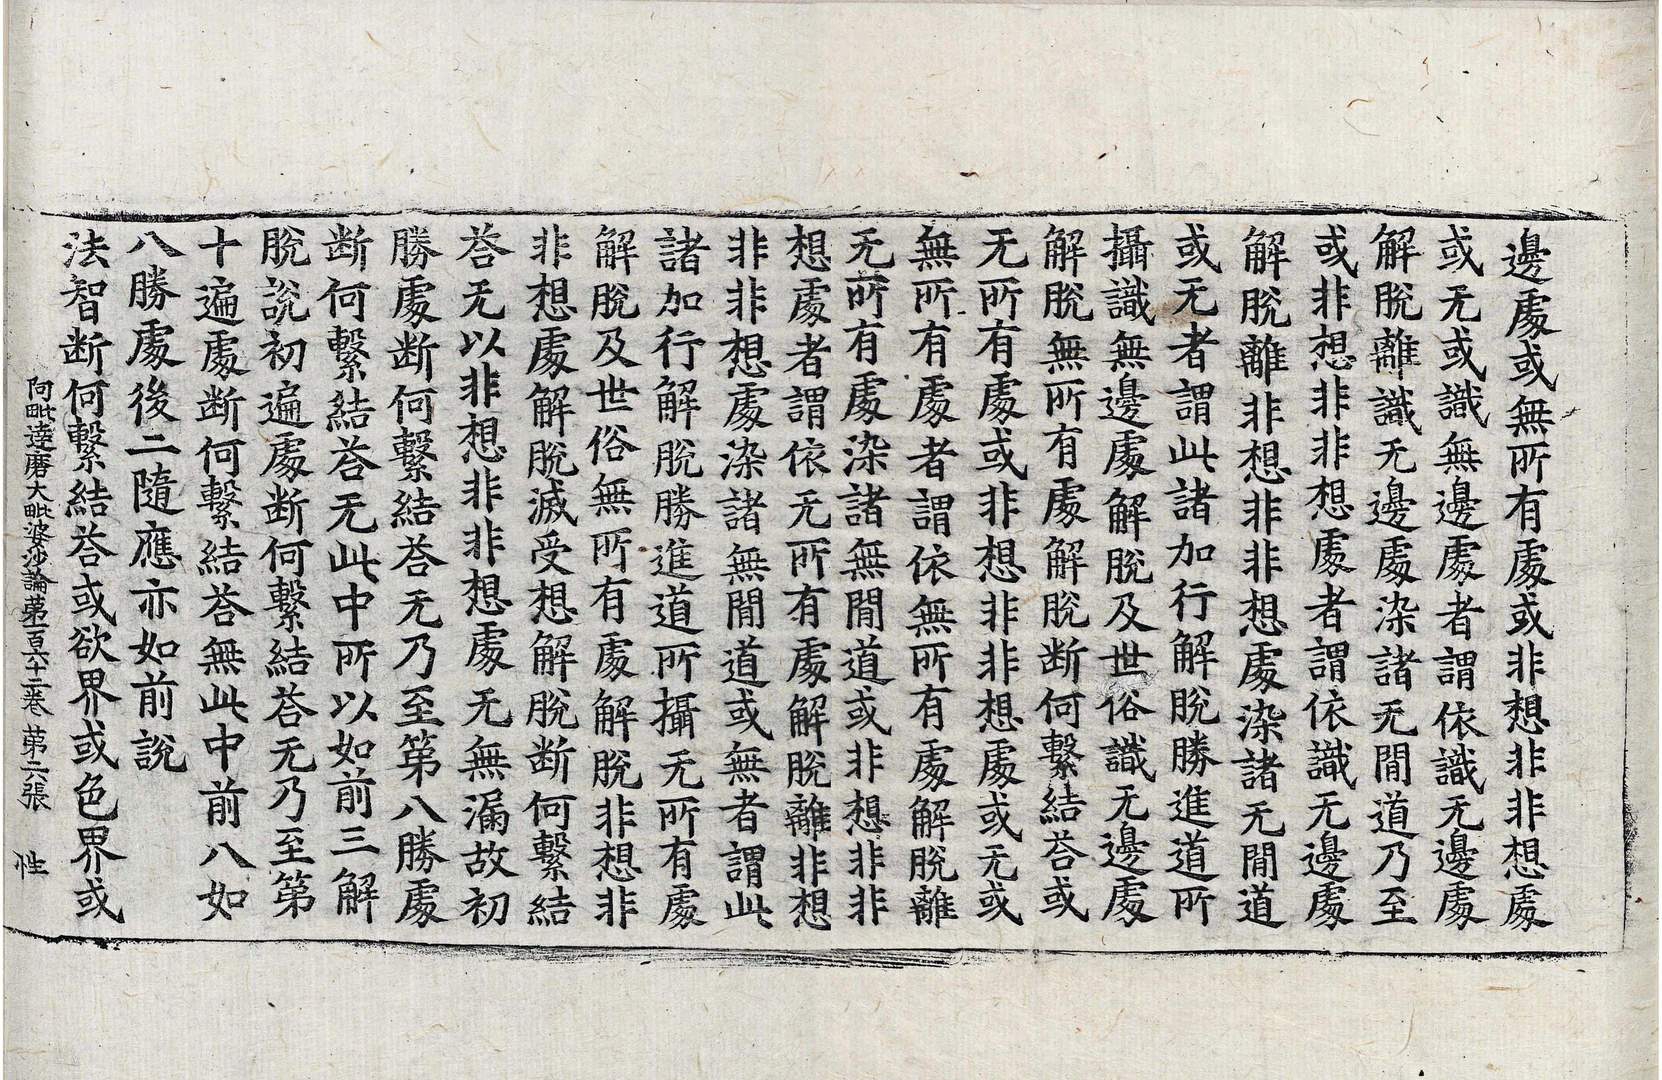 邊處或無所有處或非想非非想處
或无或識無邊處者謂依識无邊處
解脫離識无邊處染諸无閒道乃至
或非想非非想處者謂依識无邊處
解脫離非想非非想處染諸无閒道
或无者謂此諸加行解脫勝進道所
攝識無邊處解脫及世俗識无邊處
解脫無所有處解脫斷何繫結荅或
无所有處或非想非非想處或无或
無所有處者謂依無所有處解脫離
无所有處染諸無閒道或非想非非
想處者謂依无所有處解脫離非想
非非想處染諸無閒道或無者謂此
諸加行解脫勝進道所攝无所有處
解脫及世俗無所有處解脫非想非
非想處解脫滅受想解脫斷何繫結
荅无以非想非非想處无無漏故初
勝處斷何繫結荅无乃至第八勝處
斷何繫結荅无此中所以如前三解
脫說初遍處斷何繫結荅无乃至第
十遍處斷何繫結荅無此中前八如
八勝處後二隨應亦如前說
法智斷何繫結荅或欲界或色界或
阿毗達磨大毗婆沙論第一百六十二卷 第六張 性